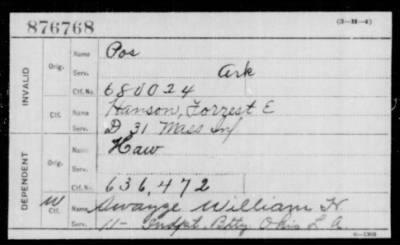 876768
(3-H-4)
INVALID
Orig.
Name
Pos
Serv.
Ark
Ctf. No.
680024
Ctf.
Name
Hanson, Forrest E
Serv.
D 31 Mass Inf
DEPENDENT
Orig.
Name
Haw
Serv.
Ctf. No.
636,472
W
Ctf.
Name
Swayze William H
Serv.
11 - Indpt. Btty Ohio L A